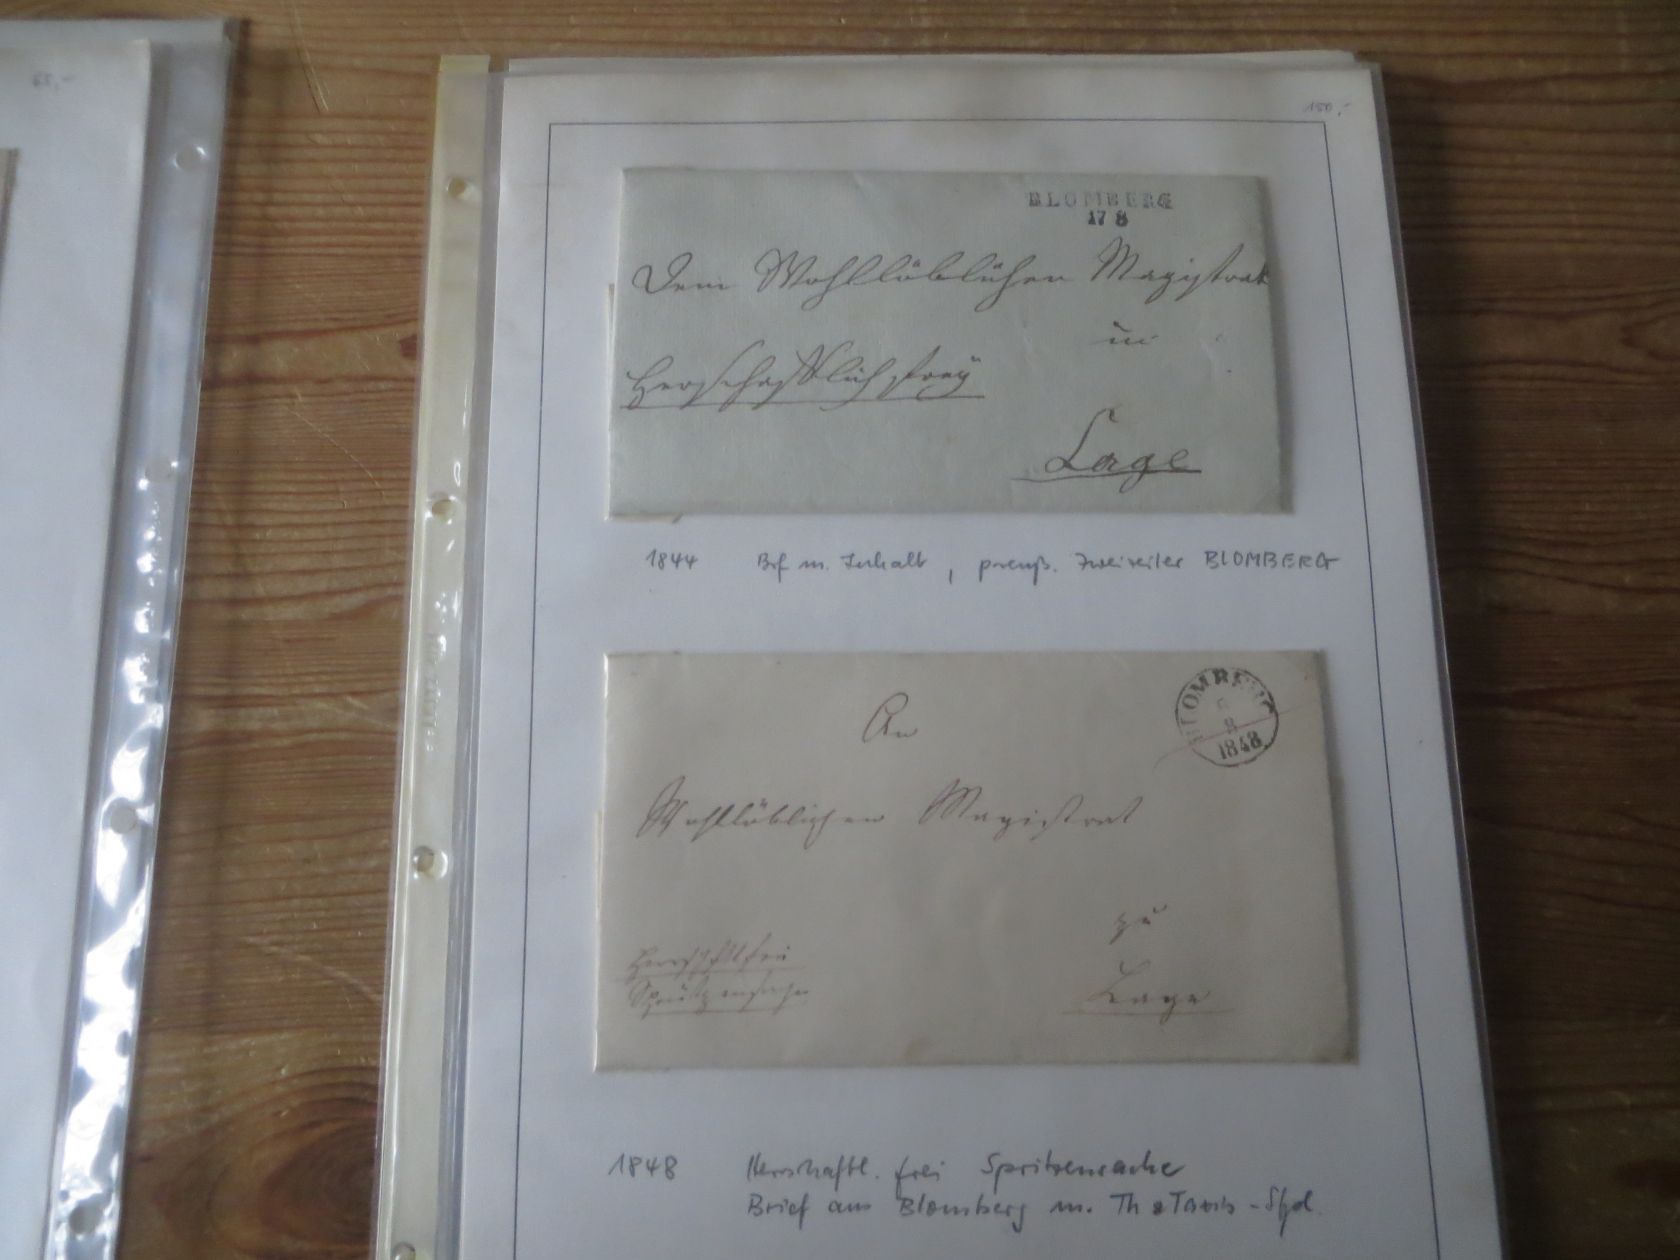 65,-
150,-
BLOMBERG
17 8
Dem Wohllöblichen Magistrat
in
Herrschaftlich frey
Lage
1844 Brf m. Inhalt, preuß. Zweizeiler BLOMBERG
BLOMBERG
8
1848
An
Wohllöblichen Magistrat
zu
Herrschftl frei
Spritzensache
Lage
1848 Herrschaftl. frei Spritzensache
Brief aus Blomberg m. Th&Taxis-Stpl.